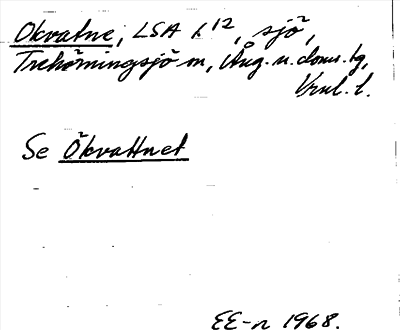 Ökvatne, LSA k12, sjö,
Trehörningsjö sn, Ång. n. doms. tg,
Vnl. l.
Se Ökvattnet
EE-n 1968.